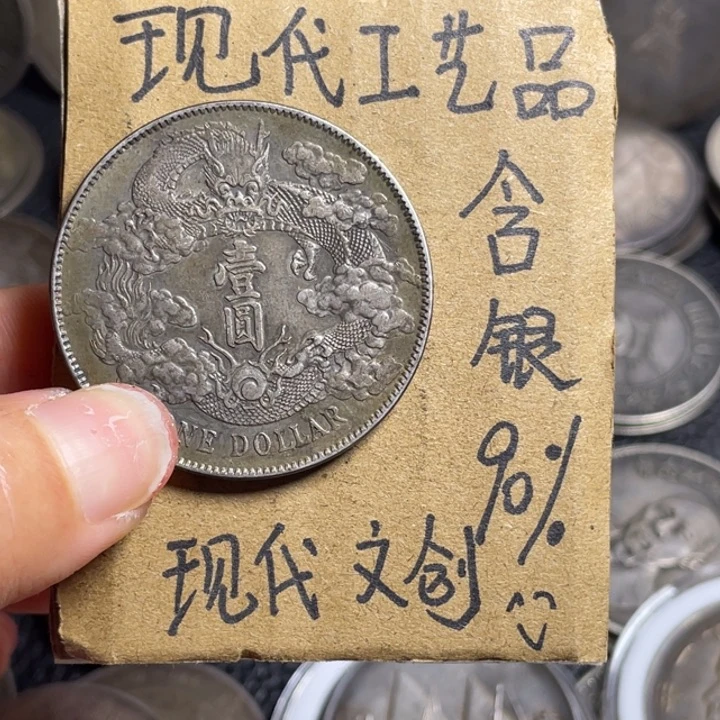 现代工艺品
含银90%
壹圆
NE DOLLAR
现代文创